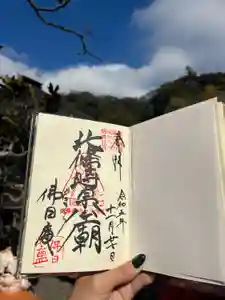 奉拝
令和五年
十一月廿日
北條時宗公廟
佛日庵